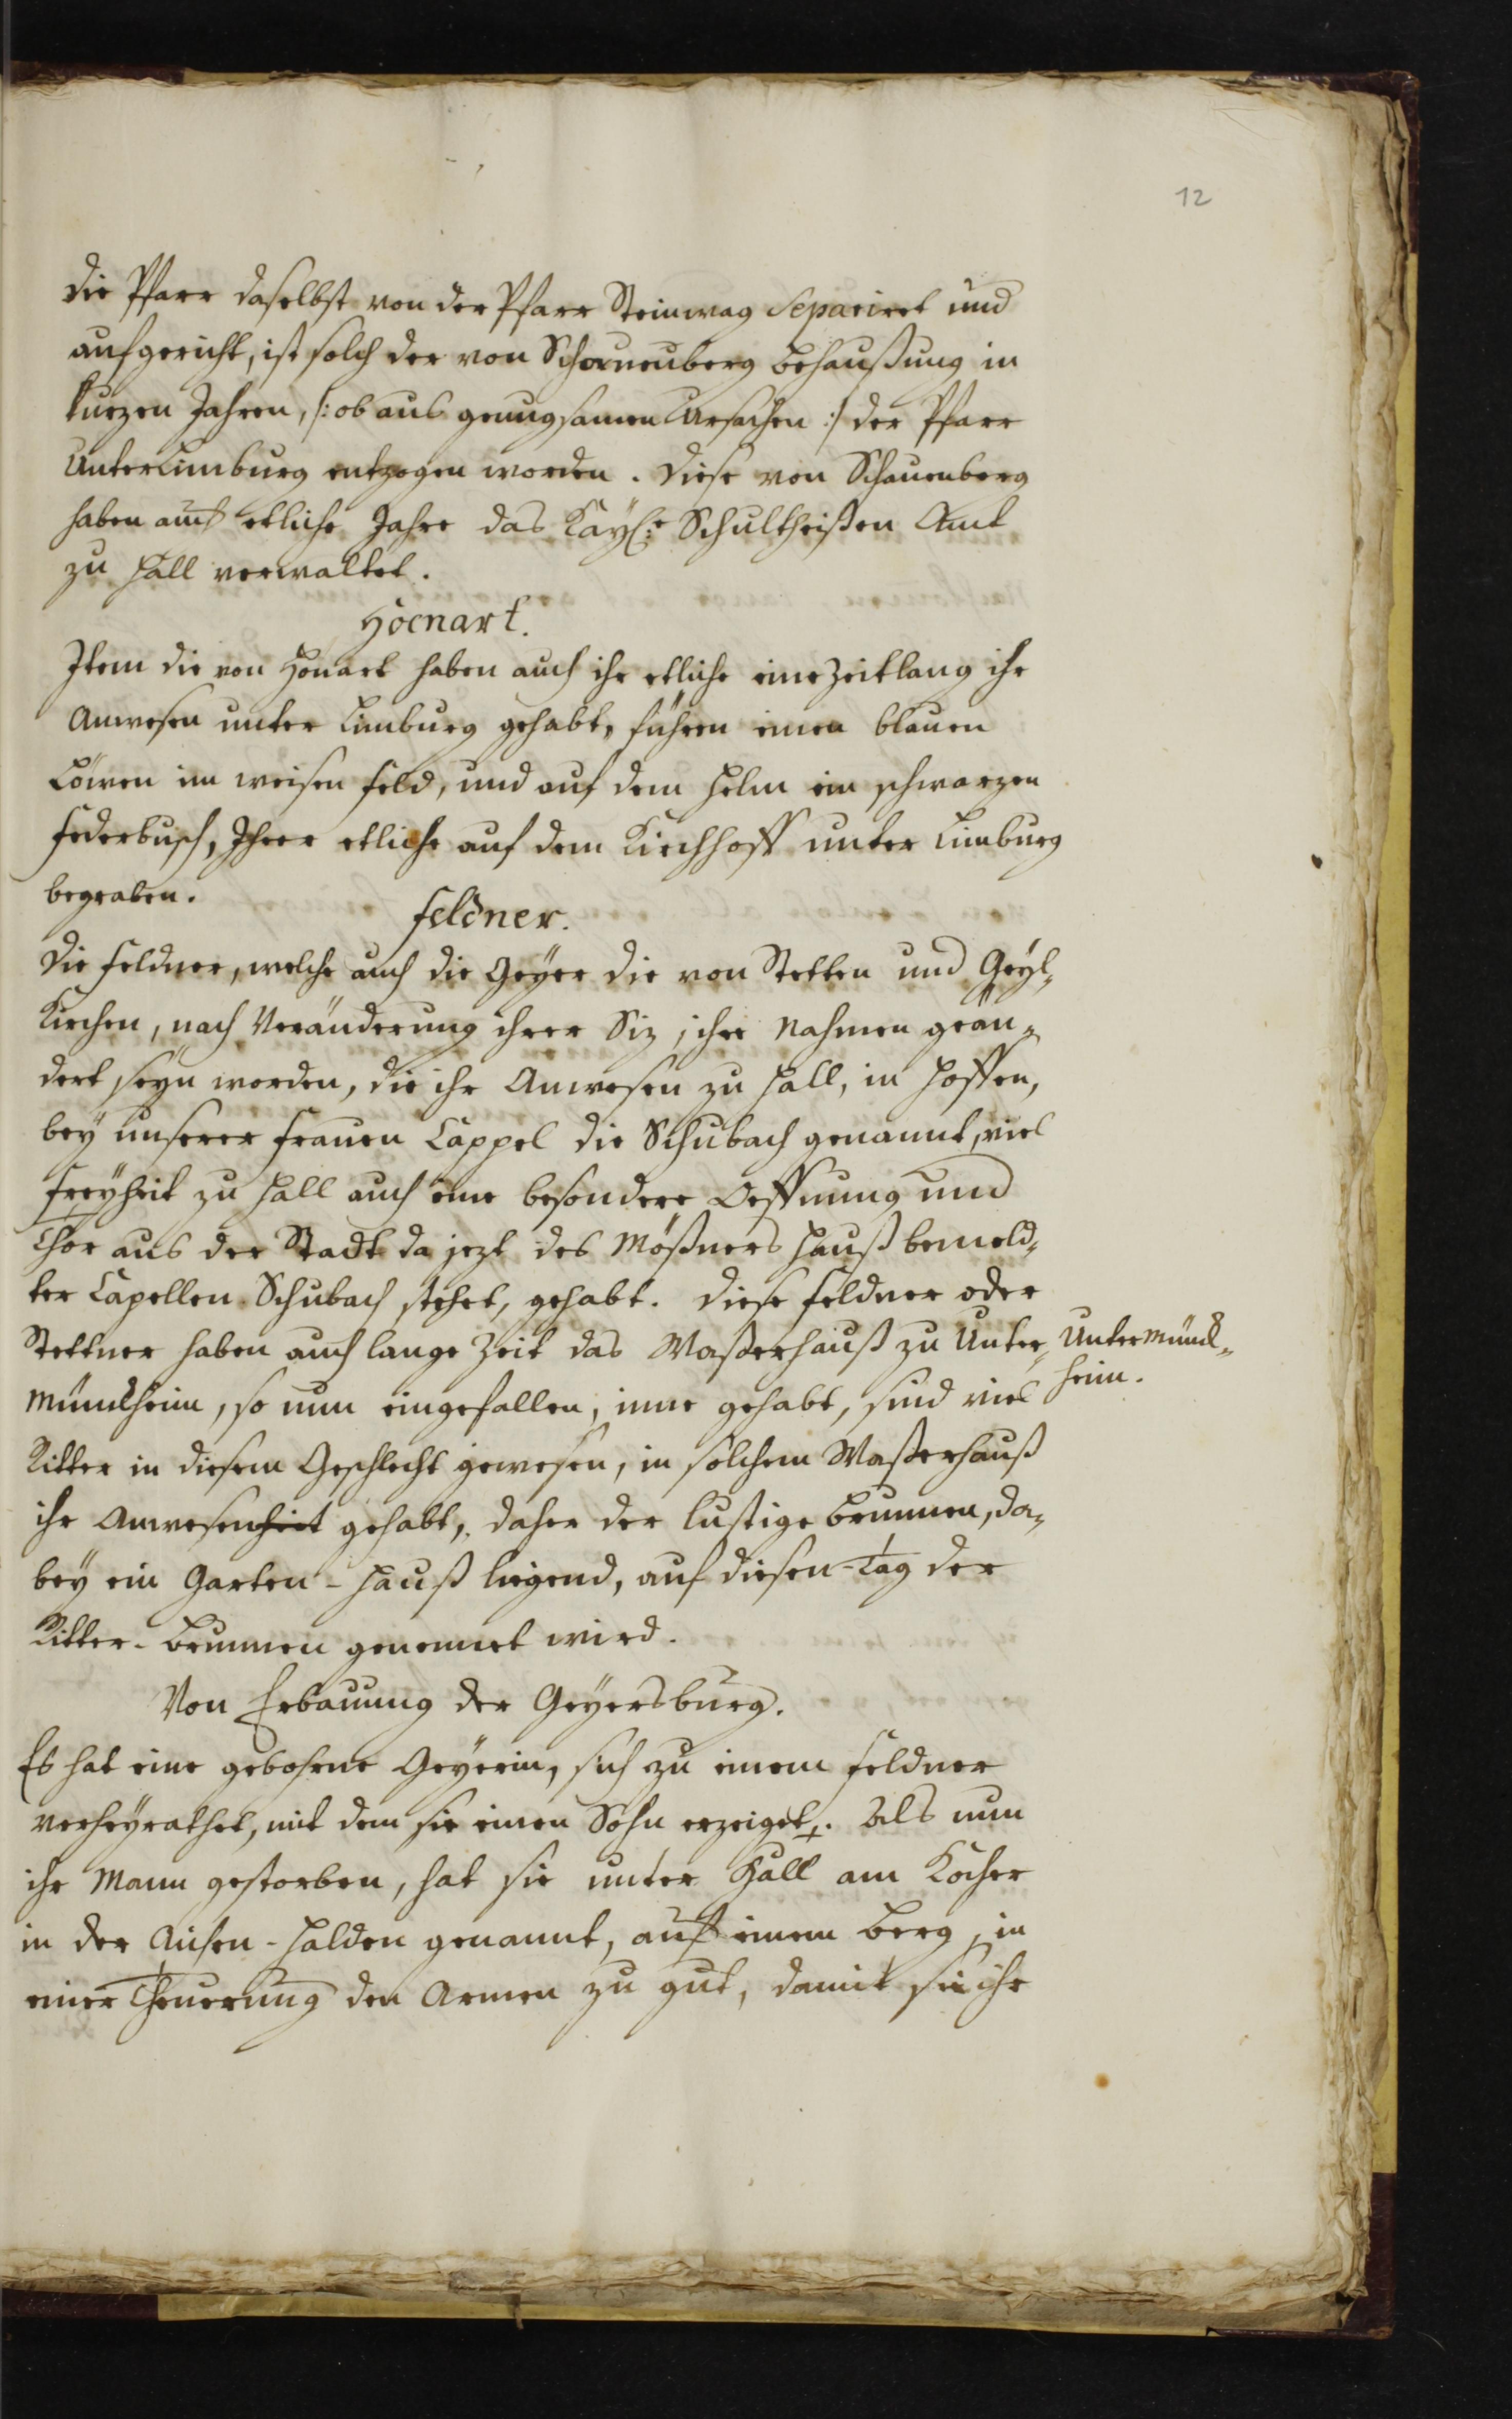 12
die Pfarr daselbst von der Pfarr Steinwag Separiret und
aufgericht, ist solch der von Schauenberg behaußung in
kurzen Jahren, /: ob aus genugsamen Ursachen :/ der Pfarr
UnterLimburg entzogen worden. Diese von Schauenberg
haben auch etliche Jahre das Kayſ:e Schultheißen Amt
zu Hall verwaltet.
Hoenart.
Item die von Honart haben auch ihr etliche eine Zeitlang ihr
Anwesen unter Limburg gehabt, führen einen blauen
Löwen im weisen Feld, und auf dem Helm ein schwarzen
Federbusch, Ihrer etliche auf dem Kirchhoff unter Limburg
begraben.
Feldner.
Die Feldner, welche auch die Geyer die von Stetten und Geyl„
Kirchen, nach Veränderung ihrer Siz, ihre Nahmen geän„
dert seyn worden, die ihr Anwesen zu Hall, in Hoffen,
bey unserer Frauen Cappel die Schubach genannt, viel
Freyheit zu Hall auch eine besondere Oeffnung und
Thor aus der Stadt da jezt des Mößners Hauß bemeld„
ter Capellen Schubach stehet, gehabt. Diese Feldner oder
Stettner haben auch lange Zeit das Waßerhauß zu Unter„
Münckheim, so nun eingefallen, inne gehabt, sind viel
Untermünck„
heim.
Ritter in diesem Geschlecht gewesen, in solchem Waßerhauß
ihr Anwesenheit gehabt, daher der lustige Brunnen, da„
bey ein Garten-Hauß liegend, auf diesen Tag der
Ritter-Brunnen genennet wird.
Von Erbauung der Geyersburg.
Es hat eine gebohrne Geyerin, sich zu einem Feldner
verheyrathet, mit dem sie einen Sohn erzeiget. Als nun
ihr Mann gestorben, hat sie unter Hall am Kocher
in der Aichen-Halden genannt, auf einem Berg, in
einer Theuerung den Armen zu gut, damit sie ihr